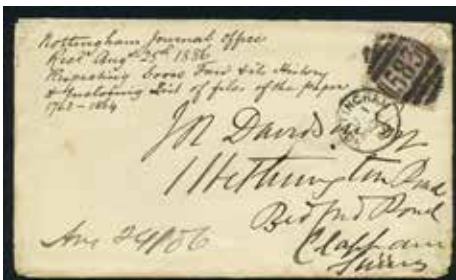 Nottingham Journal Office
Recd Augt 25th 1886
Respecting Goose Fair & its History
& Enclosing List of files of the paper
1762-1884
583
NGHAM
J R Davidson
1 Hethington Road
Bedford Road
Clapham
Surrey
Aug 24/86